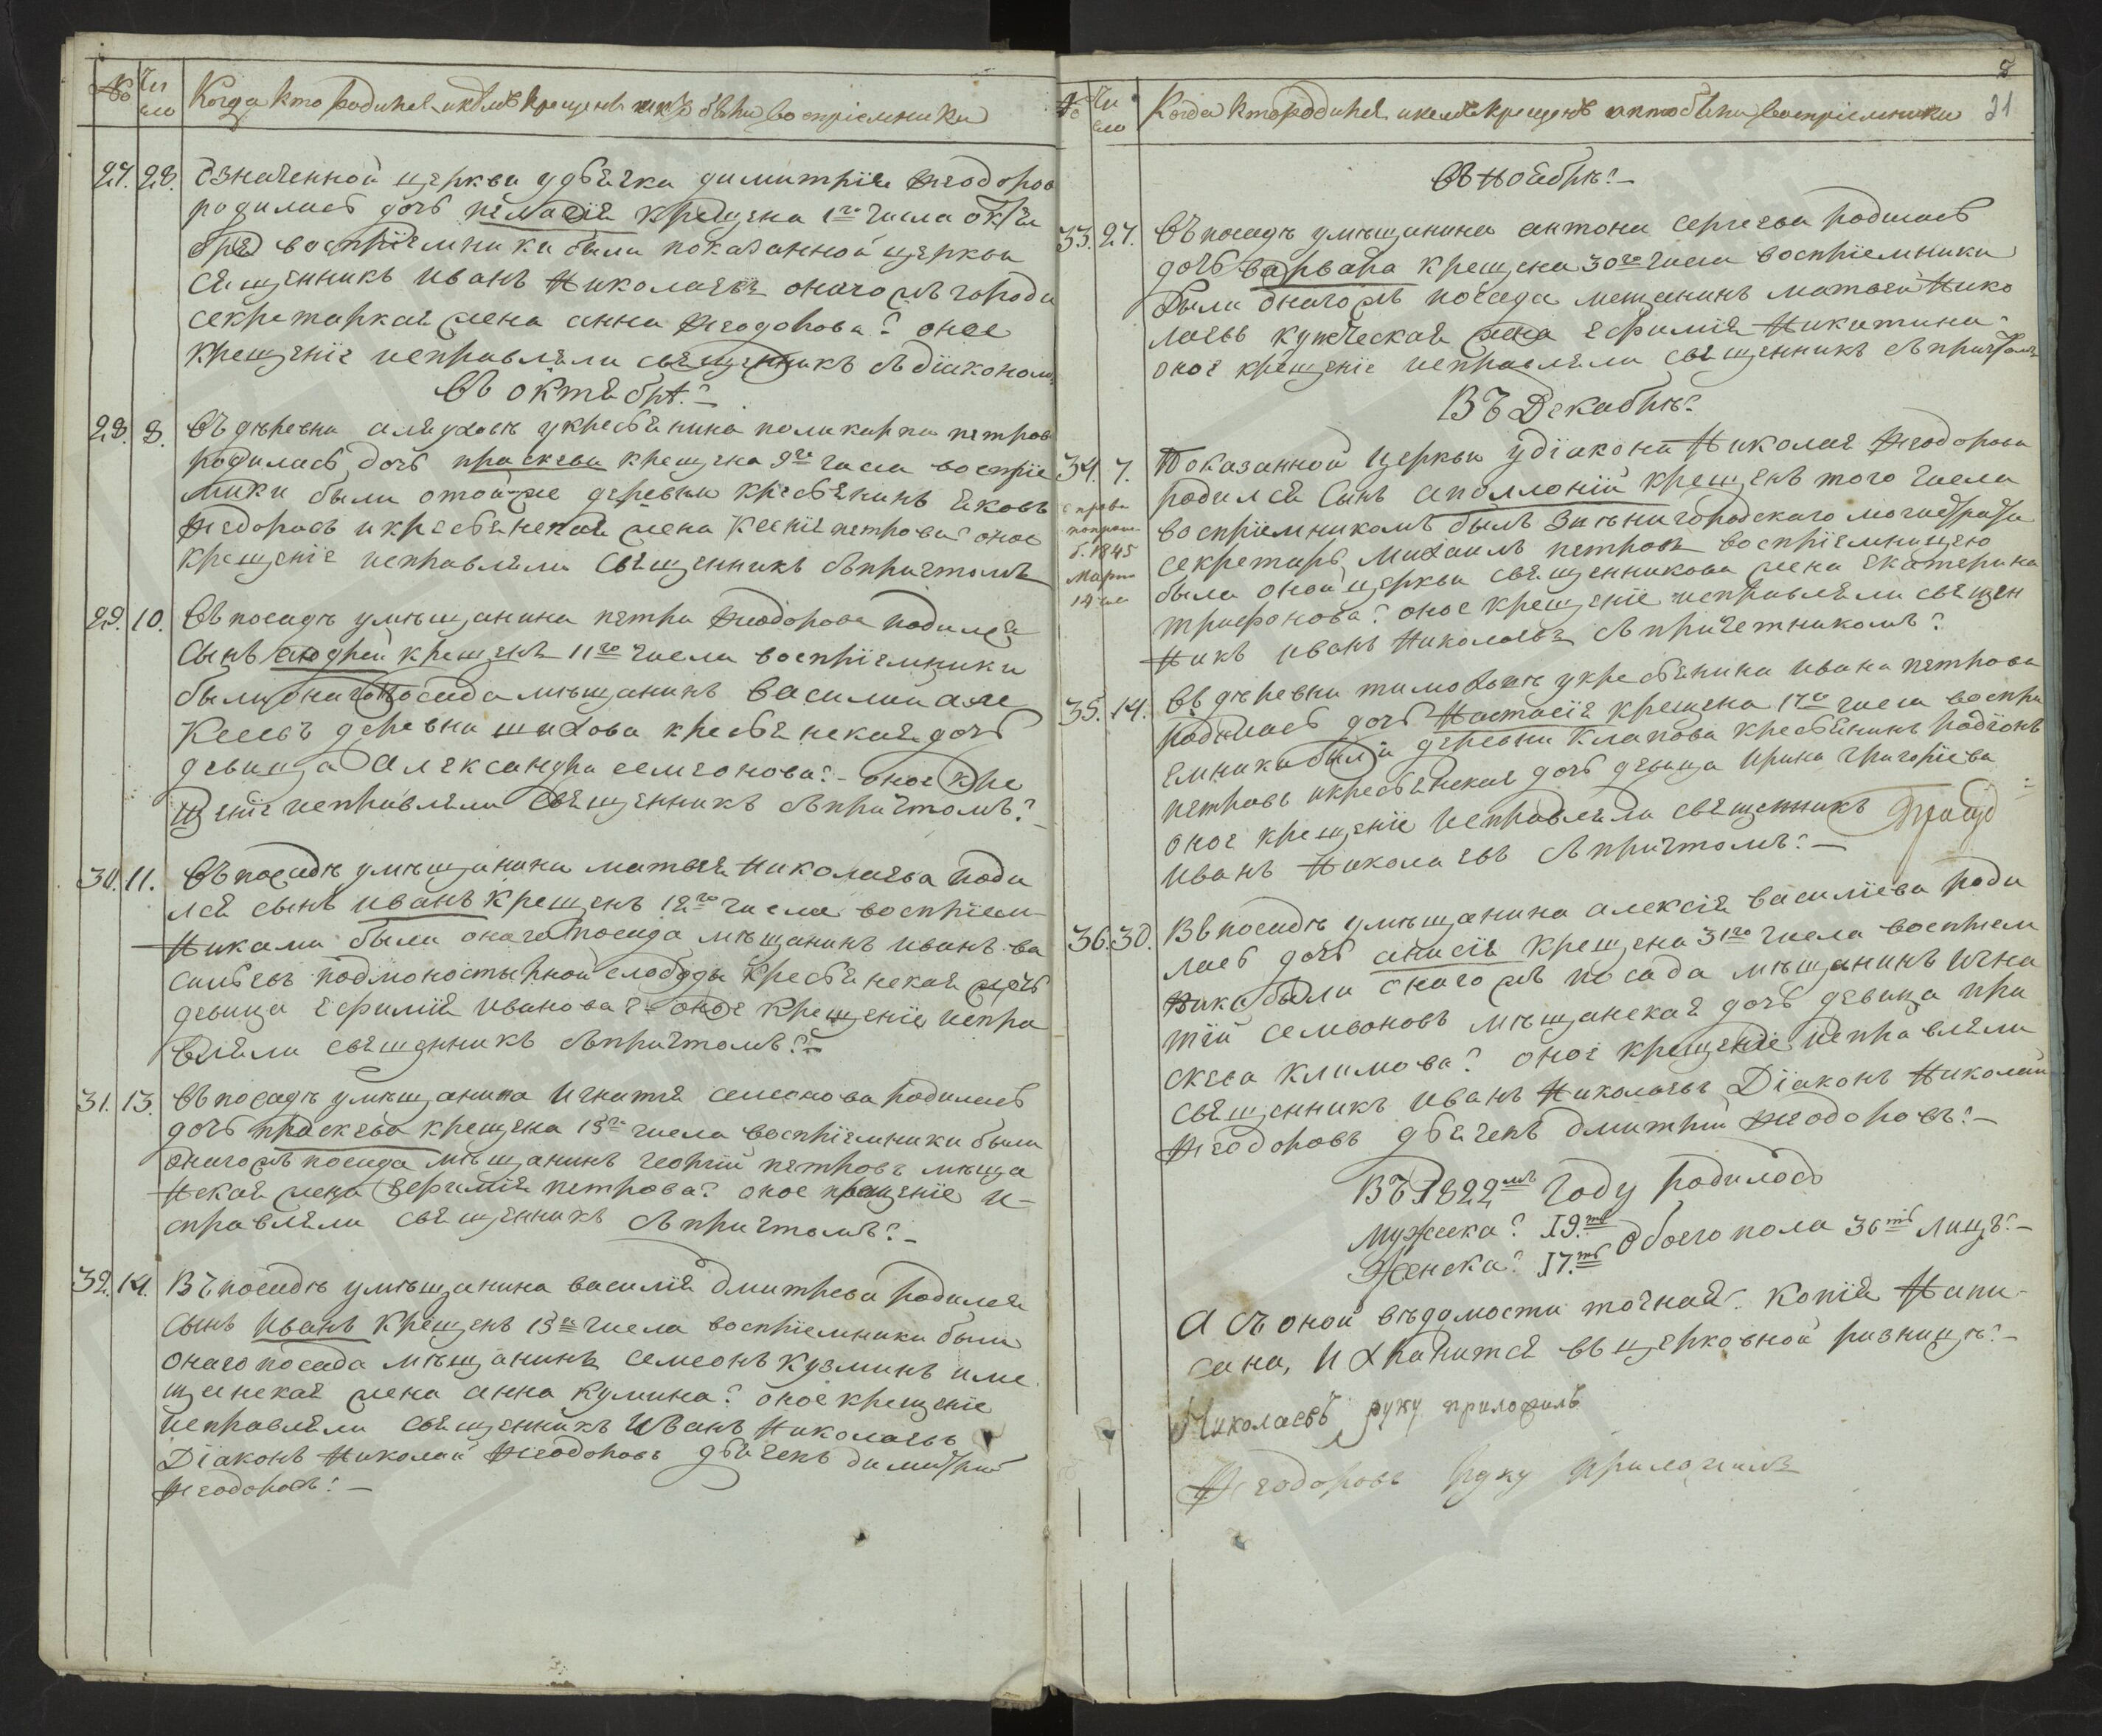 № Чи
сло Когда кто родился и кемъ крещенъ и кто были восприемники
27. 28. Означенной церкви у дьячка димитрия Феодоров
родилась дочь пелагiя крещена 1го числа октя
бря восприемники были показанной церкви
священникъ иванъ Николаевъ онагожъ города
секретаркая жена анна Феодорова: оное
крещенiе исправляли священникъ съ дiакономъ
Въ октябрѣ.
28. 8. Въ деревни аляухове у кресьянина поликарпа петров
родилась дочь праскева крещена 9го числа воспрiе
мники были отой же деревни кресьянинъ яковъ
Федоровъ и кресьянская жена Ксения петрова: оное
крещенiе исправляли Священникъ съ причтомъ
29. 10. Въ посадѣ умѣщанина петра Феодорова родился
Сынъ андрей крещенъ 11го числа воспрiемники
были онаго посада мѣщанинъ василий але
Ксеевъ деревни шихова кресьянская дочь
девица Александра семенова: оное кре
щенiе исправляли Священникъ съ причтомъ:
30. 11. Въ посадѣ умѣщанина матвея Николаева роди
лся сынъ иванъ крещенъ 12го числа воспрiем-
Никами были онаго посада мѣщанинъ иванъ ва
сильевъ подмонастырной слободы кресьянская дочь
девица ефимия иванова: оное крещенiе испра
вляли священникъ съ причтомъ:
31. 13. Въ посадѣ умѣщанина Игнатия семенова родилась
дочь праскева крещена 15го числа воспрiемники были
онагожъ посада мѣщанинъ георгий петровъ мѣща
нская жена ефимiя петрова: оное крещенiе и-
справляли священникъ съ причтомъ:
32. 14. Въ посадѣ умѣщанина василiя дмитрева родился
Сынъ Иванъ Крещенъ 15го числа воспрiемники были
онаго посада мѣщанинъ семеонъ кузминъ и ме
щанская жена анна кумина: оное крещенiе
исправляли священникъ Иванъ Николаевъ
Дiаконъ Николай Феодоровъ дьячекъ димитрий
Феодоровъ:
8
№ Чи
сло Когда кто родился и кемъ крещенъ и кто были восприемники 21
Въ ноябрѣ:
33. 27. Въ посадѣ умѣщанина антона сергеева родилась
дочь варвара крещена 30го числа воспрiемники
были онагожъ посада мещанинъ матвей Нико
лаевъ купеческая жена ефимия Никитина
оное крещенiе исправляли священникъ съ причтомъ
Въ Декабрѣ:
34. 7. Показанной церкви у дiакона Николая Феодорова
родился сынъ аполлонiй крещенъ того числа
воспрiемникомъ былъ Звѣнигородскаго магистрата
секретарь Михаилъ петровъ воспрiемницею
была оной церкви священникова жена екатерина
трифонова: оное крещенiе исправляли священ
Никъ иванъ Николаевъ съ причетникомъ:
справка
1845
Марта
14 дня
35. 14. Въ деревни тимоховѣ у кресьянина ивана петрова
родилась дочь Настасiя крещена 17го числа воспри
емники были деревни Клапова кресьянинъ родiонъ
петровъ и кресьянская дочь девица ирина григорiева
оное крещенiе исправляли священникъ
иванъ Николаевъ съ причтомъ:
36. 30. Въ посадѣ умѣщанина алексiя василiева роди
лась дочь анисiя крещена 31го числа воспрiем
ники были онагожъ посада мѣщанинъ игна
тий семеоновъ мѣщанская дочь девица пра
скева климова: оное крещенiе исправляли
священникъ иванъ Николаевъ Дiаконъ Николай
Феодоровъ дьячекъ дмитрий Феодоровъ:
Въ 1822мъ году родилось
мужеска: 19ть
Женска: 17ть Обоего пола 36ть лицъ:
А съ оной вѣдомости точная копiя Напи-
сана, и хранится въ церковной ризницѣ:
Николаевъ руку приложилъ
Феодоровъ руку приложилъ